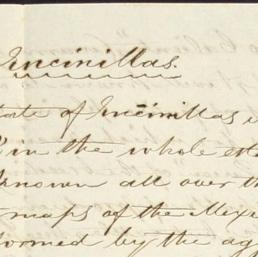 Encinillas.
tate of Encinillas i
in the whole est
known all over th
maps of the Mexi
formed by the ag